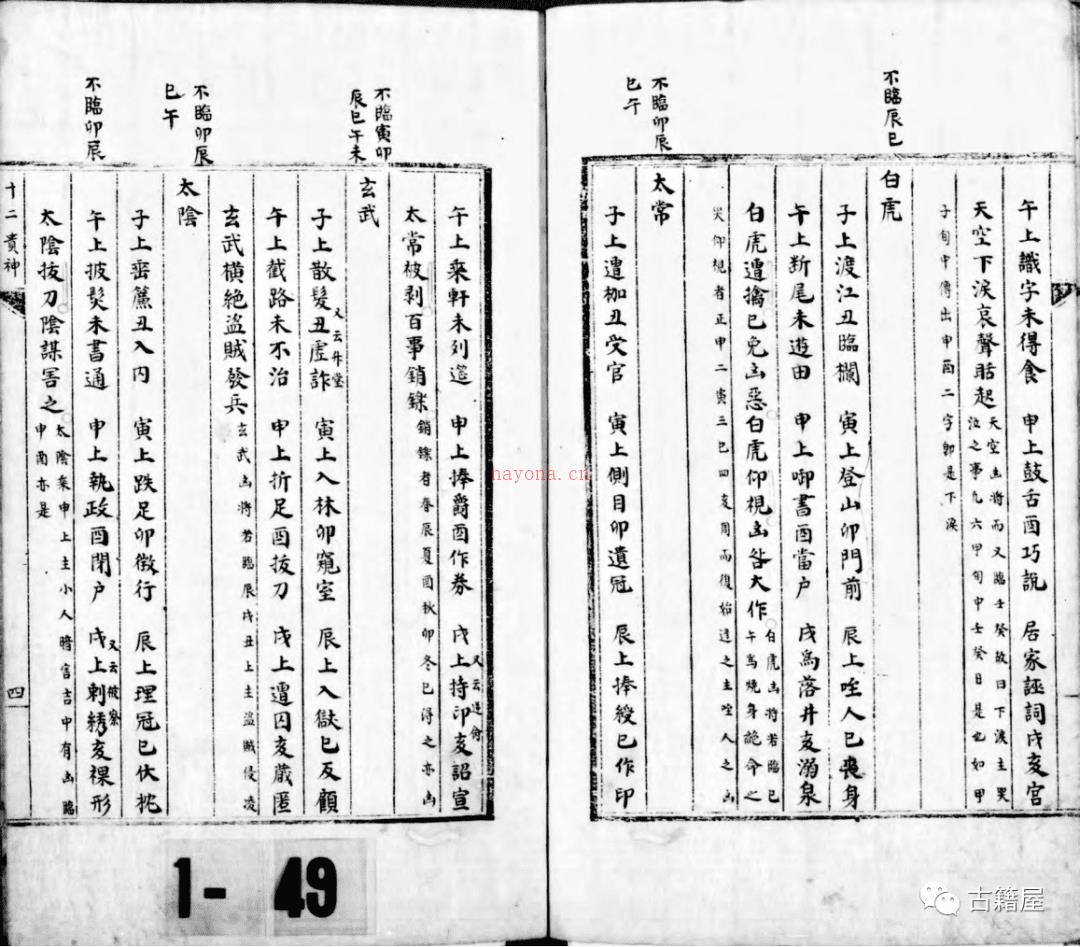 午上識字未得食　申上鼓舌酉巧說　居家誣詞戌亥宮
天空下淚哀聲聒起天空凶將而又臨壬癸故曰下淚主哭
泣之事九六甲旬中壬癸日是也如甲
子旬中傳出申酉二字卽是下淚
不臨辰巳
白虎
子上渡江丑臨欄　寅上登山卯門前　辰上咥人巳喪身
午上断尾未遊田　申上啣書酉當户　戌爲落井亥溺泉
白虎遭擒巳免凶惡白虎仰視凶咎大作白虎凶將若臨巳
午爲燒身詭命之
災仰視者正申二寅三巳四亥周而復始遇之主咥人之凶
不臨卯辰
巳午
太常
子上遭枷丑受官　寅上側目卯遺冠　辰上捧綬巳作印
午上乘軒未列筵　申上捧爵酉作券　戌上持印亥詔宣
太常被剥百事銷鎳銷鎳者春辰夏酉秋卯冬巳得之亦凶
不臨寅卯
辰巳午未
玄武
子上散髮丑虛詐　寅上入林卯窺室　辰上入獄巳反顧
又云升堂
午上截路未不治　申上折足酉拔刀　戌上遭囚亥藏匿
玄武横絶盜賊發兵玄武凶將若臨辰戌丑上主盜賊侵凌
不臨卯辰
巳午
太陰
子上垂簾丑入内　寅上跌足卯微行　辰上理冠巳伏枕
不臨卯辰
午上披髮未書通　申上執政酉閉户　戌上刺綉亥裸形
太陰拔刀陰謀害之太陰乘申上主小人暗害吉中有凶臨
申酉亦是
十二貴神
四
1- 49
hayona.cn
古籍屋